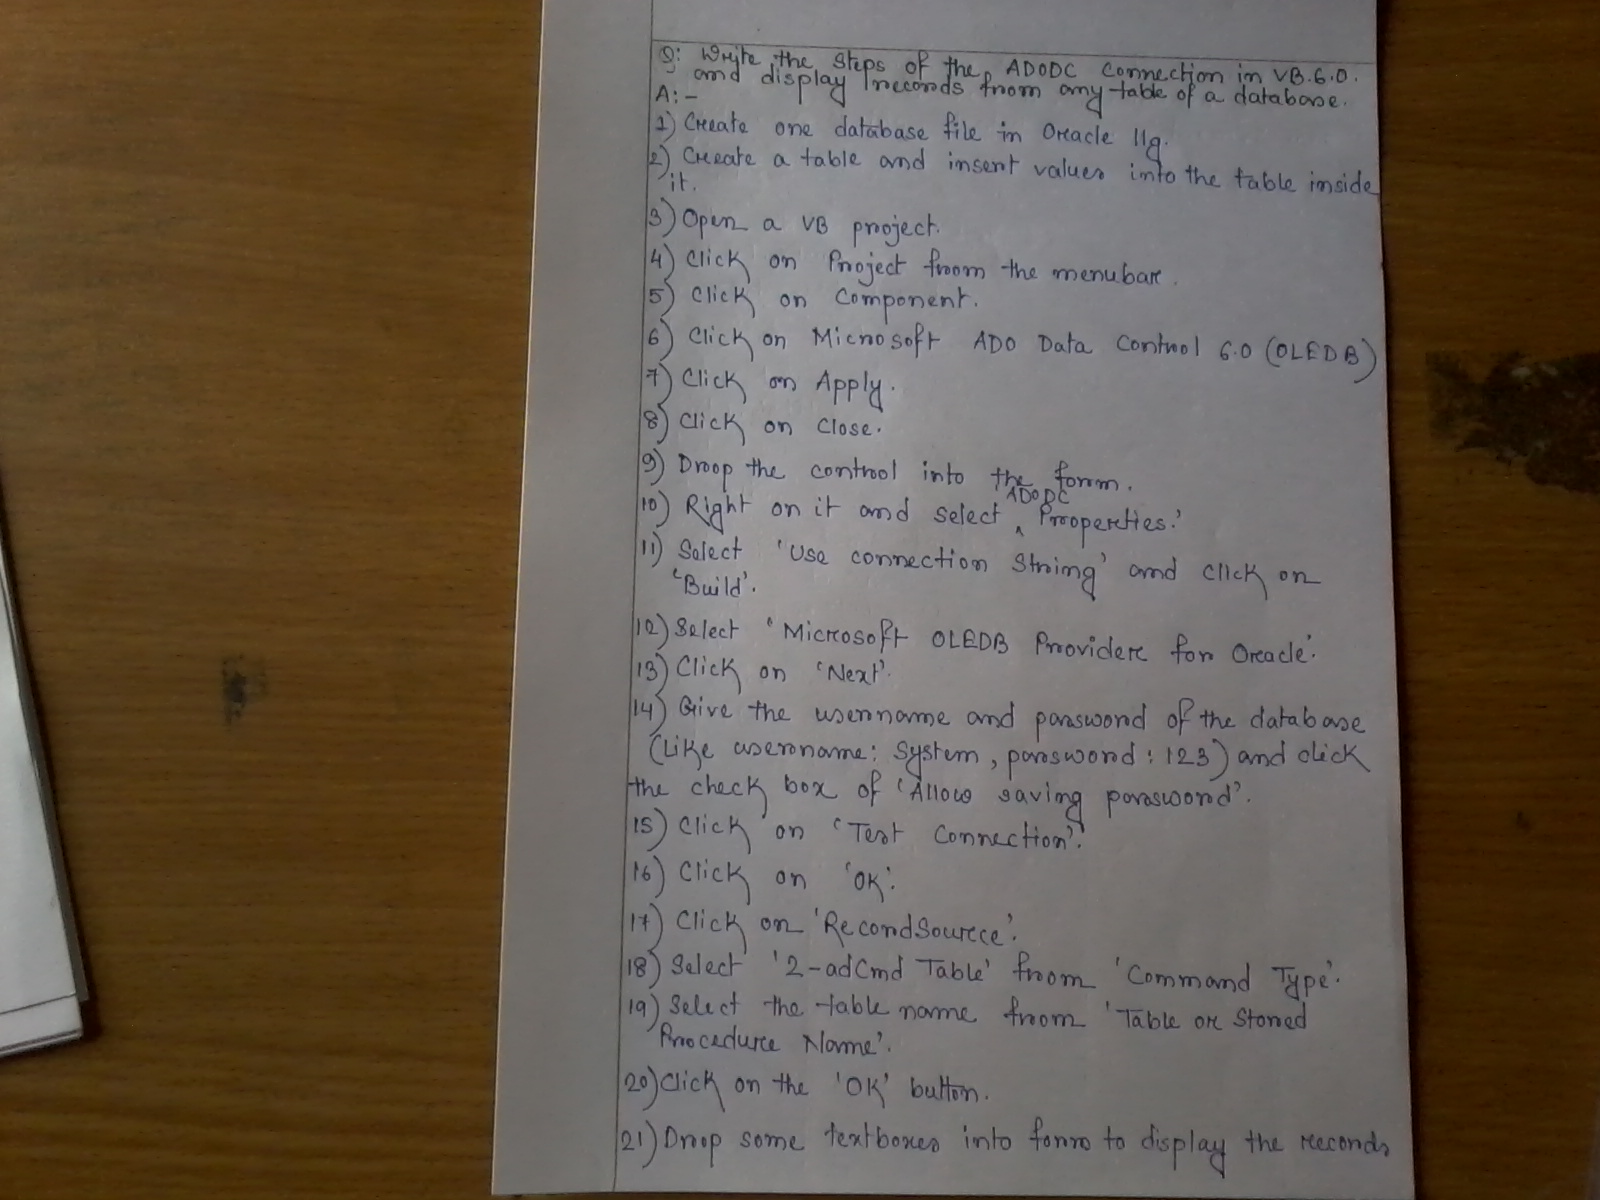 Q: Write the steps of the ADODC connection in VB.6.0.
and display records from any table of a database.
A:-
1) Create one database file in Oracle 11g.
2) Create a table and insert values into the table inside
it.
3) Open a VB project.
4) Click on Project from the menubar.
5) Click on Component.
6) Click on Microsoft ADO Data Control 6.0 (OLEDB)
7) Click on Apply.
8) Click on Close.
9) Drop the control into the form.
10) Right on it and select ADODC Properties.'
11) Select 'Use connection String' and click on
'Build'.
12) Select 'Microsoft OLEDB Provider for Oracle'.
13) Click on 'Next'.
14) Give the username and password of the database
(Like username: System, password: 123) and click
the check box of 'Allow saving password'.
15) Click on 'Test Connection'.
16) Click on 'OK'.
17) Click on 'RecordSource'.
18) Select '2-adCmd Table' from 'Command Type'.
19) Select the table name from 'Table or Stored
Procedure Name'.
20) Click on the 'OK' button.
21) Drop some textboxes into form to display the records